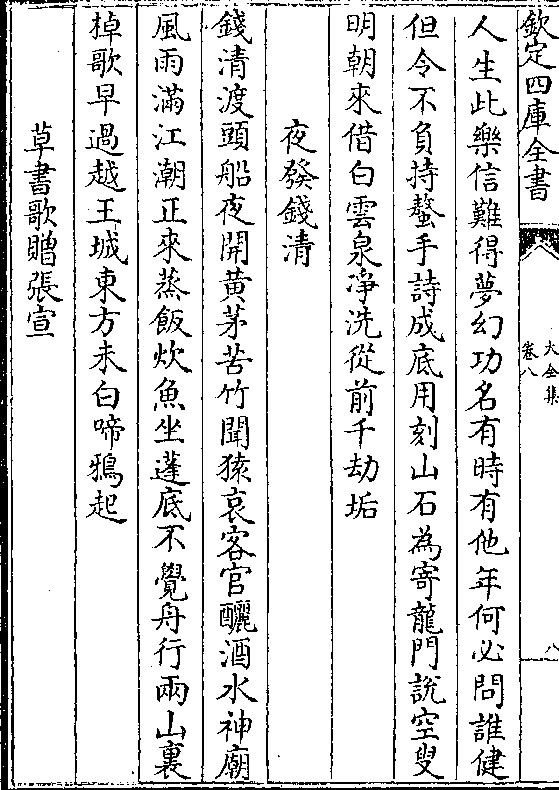 欽定四庫全書
大全集
卷八
八
人生此樂信難得夢幻功名有時有他年何必問誰健
但令不負持螯手詩成底用刻山石為寄龍門說空叟
明朝來借白雲泉凈洗從前千劫垢
夜發錢清
錢清渡頭船夜開黃茅苦竹聞猿哀客官釃酒水神廟
風雨滿江潮正來蒸飯炊魚坐蓬底不覺舟行兩山裏
棹歌早過越王城東方未白啼鴉起
草書歌贈張宣